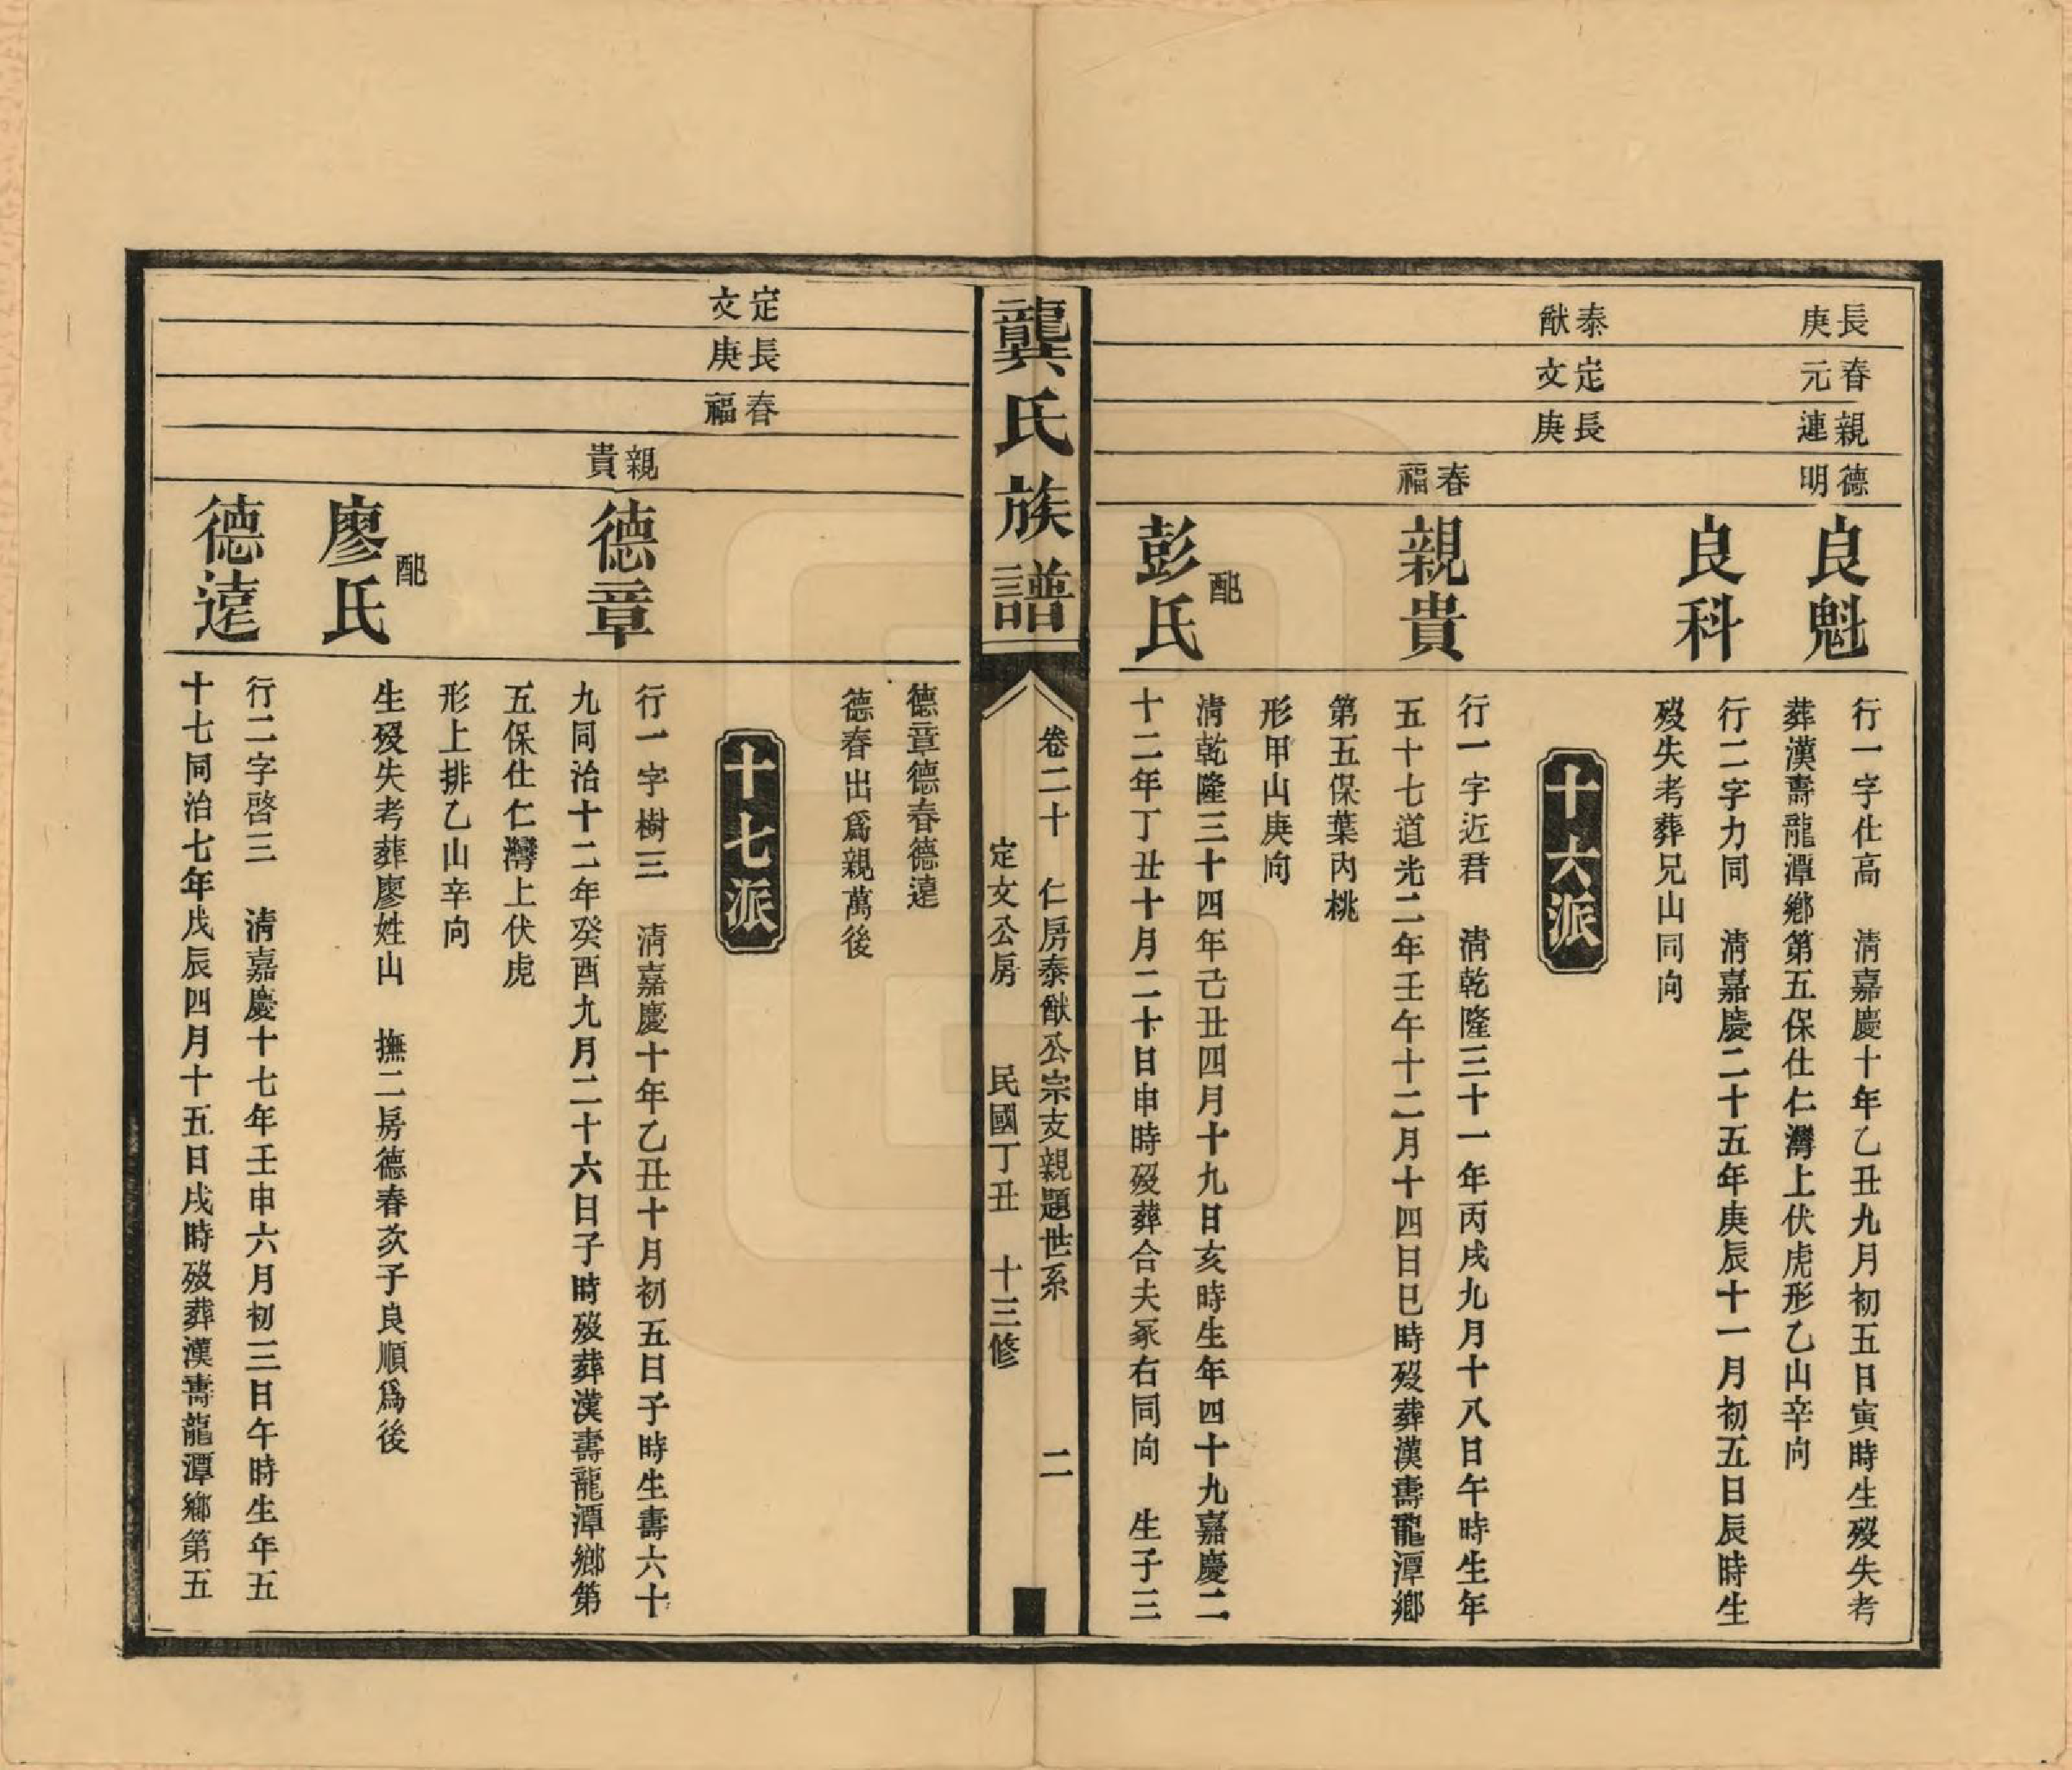 長庚
春元
親連
德明
良魁
行一字仕高　清嘉慶十年乙丑九月初五日寅時生歿失考
葬漢壽龍潭鄉第五保仕仁灣上伏虎形乙山辛向
良科
行二字力同　清嘉慶二十五年庚辰十一月初五日辰時生
歿失考葬兄山同向
泰猷
定文
長庚
十六派
春福
親貴
行一字近君　清乾隆三十一年丙戌九月十八日午時生年
五十七道光二年壬午十二月十四日巳時歿葬漢壽龍潭鄉
第五保葉內桃
形甲山庚向
配
彭氏
清乾隆三十四年己丑四月十九日亥時生年四十九嘉慶二
十二年丁丑十月二十日申時歿葬合夫冢右同向　生子三
龔氏族譜
卷二十　仁房泰猷公宗支親題世系　二
定文公房　民國丁丑　十三修
德章德春德達
德春出爲親萬後
定文
長庚
春福
十七派
親貴
德章
行一字樹三　清嘉慶十年乙丑十月初五日子時生壽六十
九同治十二年癸酉九月二十六日子時歿葬漢壽龍潭鄉第
五保仕仁灣上伏虎
形上排乙山辛向
配
廖氏
生歿失考葬廖姓山　撫二房德春次子良順爲後
德達
行二字啓三　清嘉慶十七年壬申六月初三日午時生年五
十七同治七年戊辰四月十五日戌時歿葬漢壽龍潭鄉第五